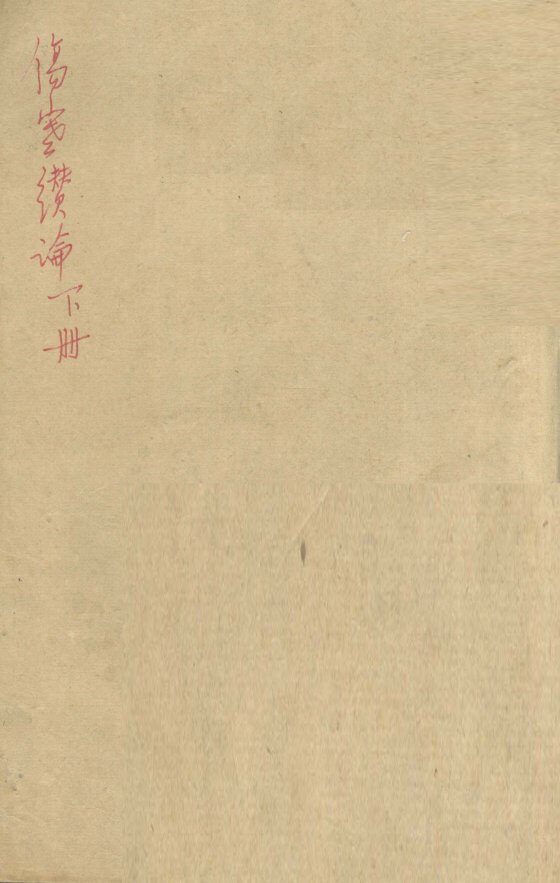 傷寒纘論下册